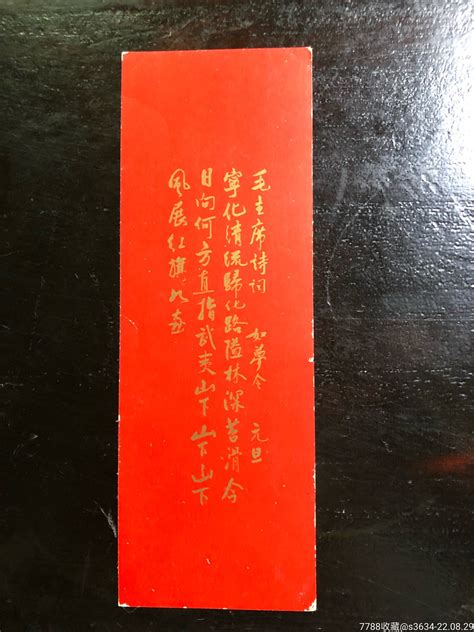 毛主席诗词 如梦令 元旦
寧化清流歸化路隘林深苔滑今
日向何方直指武夷山下山下山下
风展红旗如画
7788收藏@s3634-22.08.29